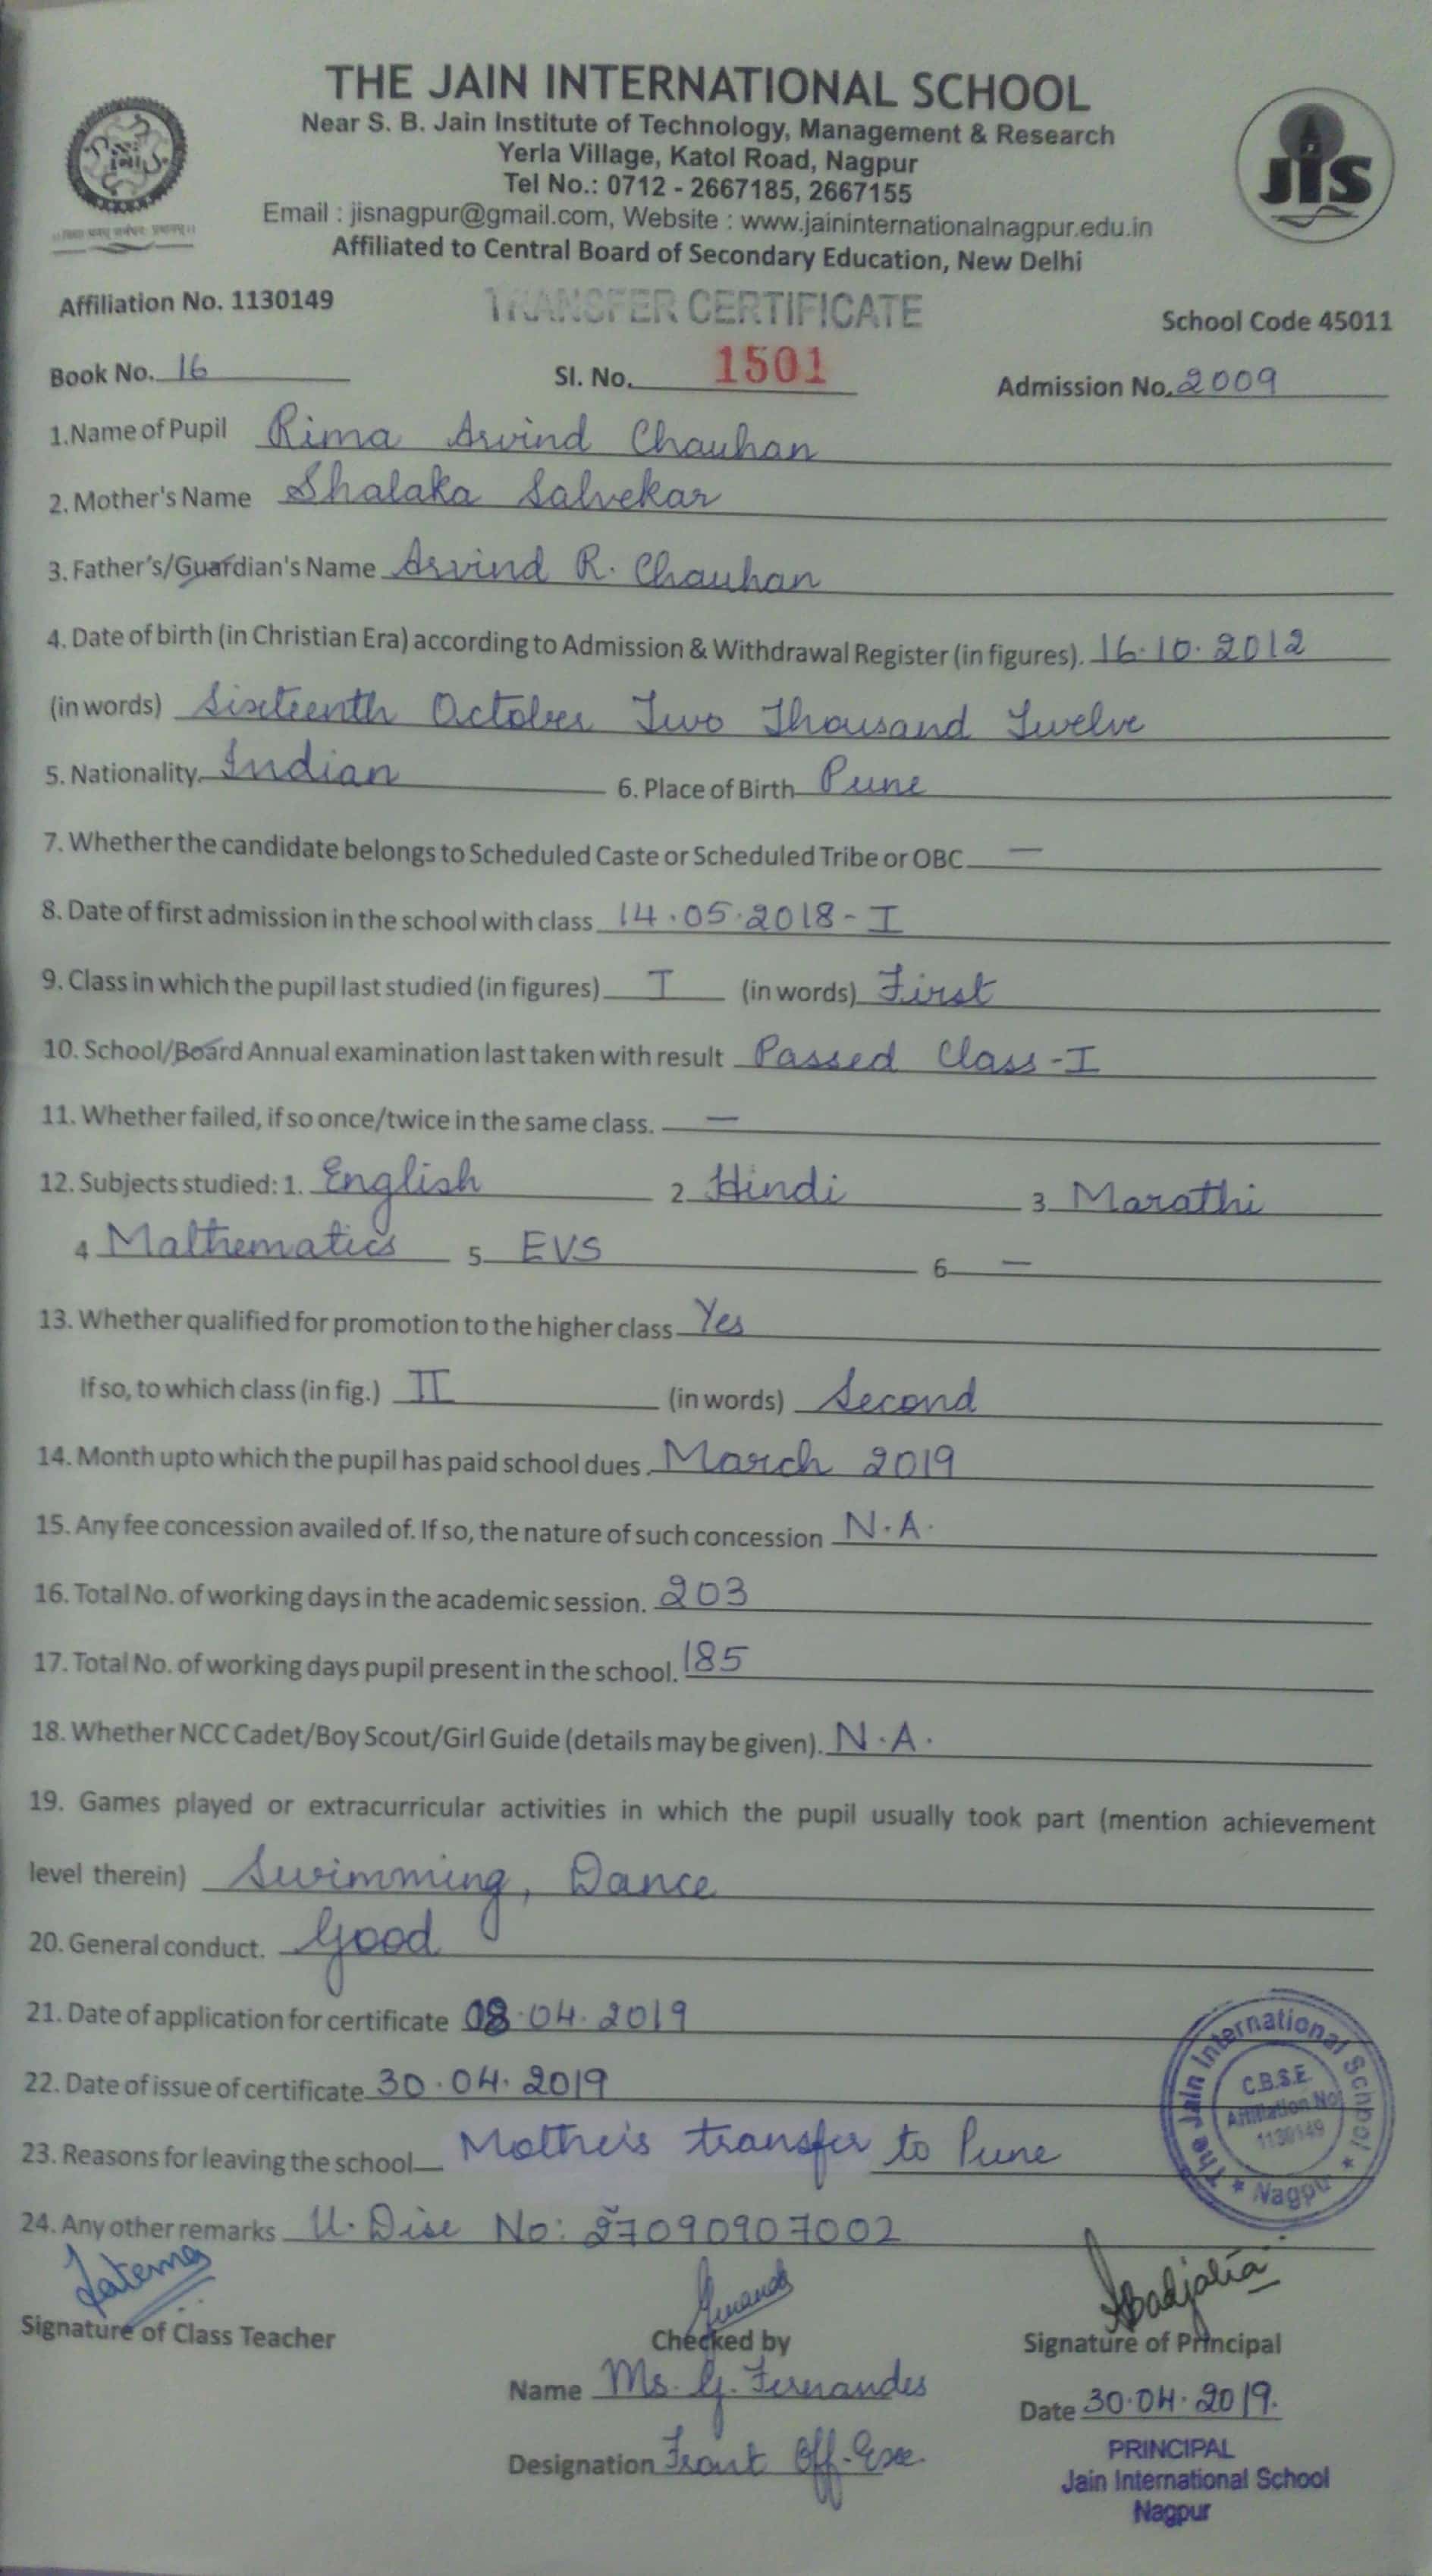 THE JAIN INTERNATIONAL SCHOOL
Near S. B. Jain Institute of Technology, Management & Research
Yerla Village, Katol Road, Nagpur
Tel No.: 0712 - 2667185, 2667155
Email : jisnagpur@gmail.com, Website : www.jaininternationalnagpur.edu.in
Affiliated to Central Board of Secondary Education, New Delhi
JIS
Affiliation No. 1130149 TRANSFER CERTIFICATE School Code 45011
Book No. 16 Sl. No. 1501 Admission No. 2009
1.Name of Pupil Rima Arvind Chauhan
2. Mother's Name Shalaka Salvekar
3. Father's/Guardian's Name Arvind R. Chauhan
4. Date of birth (in Christian Era) according to Admission & Withdrawal Register (in figures). 16.10.2012
(in words) Sixteenth October Two Thousand Twelve
5. Nationality. Indian 6. Place of Birth Pune
7. Whether the candidate belongs to Scheduled Caste or Scheduled Tribe or OBC —
8. Date of first admission in the school with class 14.05.2018 - I
9. Class in which the pupil last studied (in figures) I (in words) First
10. School/Board Annual examination last taken with result Passed Class - I
11. Whether failed, if so once/twice in the same class. —
12. Subjects studied: 1. English 2. Hindi 3. Marathi
4 Mathematics 5 EVS 6 —
13. Whether qualified for promotion to the higher class Yes
If so, to which class (in fig.) II (in words) Second
14. Month upto which the pupil has paid school dues. March 2019
15. Any fee concession availed of. If so, the nature of such concession N.A.
16. Total No. of working days in the academic session. 203
17. Total No. of working days pupil present in the school. 185
18. Whether NCC Cadet/Boy Scout/Girl Guide (details may be given). N.A.
19. Games played or extracurricular activities in which the pupil usually took part (mention achievement
level therein) Swimming, Dance
20. General conduct. Good
21. Date of application for certificate 08.04.2019
22. Date of issue of certificate 30.04.2019
23. Reasons for leaving the school Mother's transfer to Pune
24. Any other remarks U. Dise No: 27090907002
The Jain International School * Nagpur *
C.B.S.E.
Affiliation No
1130149
Signature of Class Teacher Checked by Signature of Principal
Name Ms. G. Fernandes Date 30.04.2019.
Designation Front Off. Exe.
PRINCIPAL
Jain International School
Nagpur